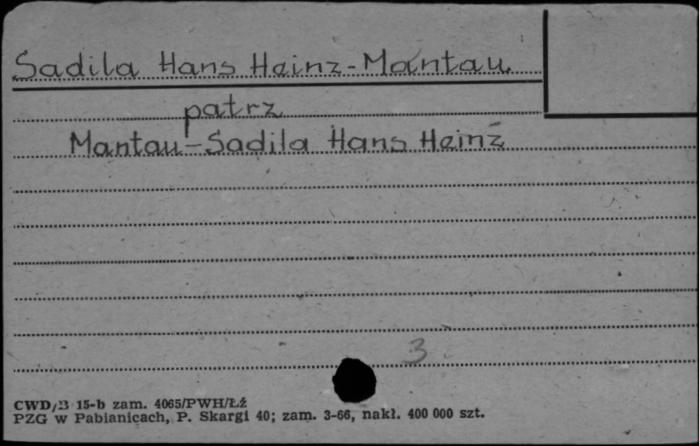 Sadila Hans Heinz-Mantau
patrz
Mantau-Sadila Hans Heinz
3
CWD/B 15-b zam. 4065/PWH/Łź
PZG w Pabianicach, P. Skargi 40; zam. 3-66, nakł. 400 000 szt.